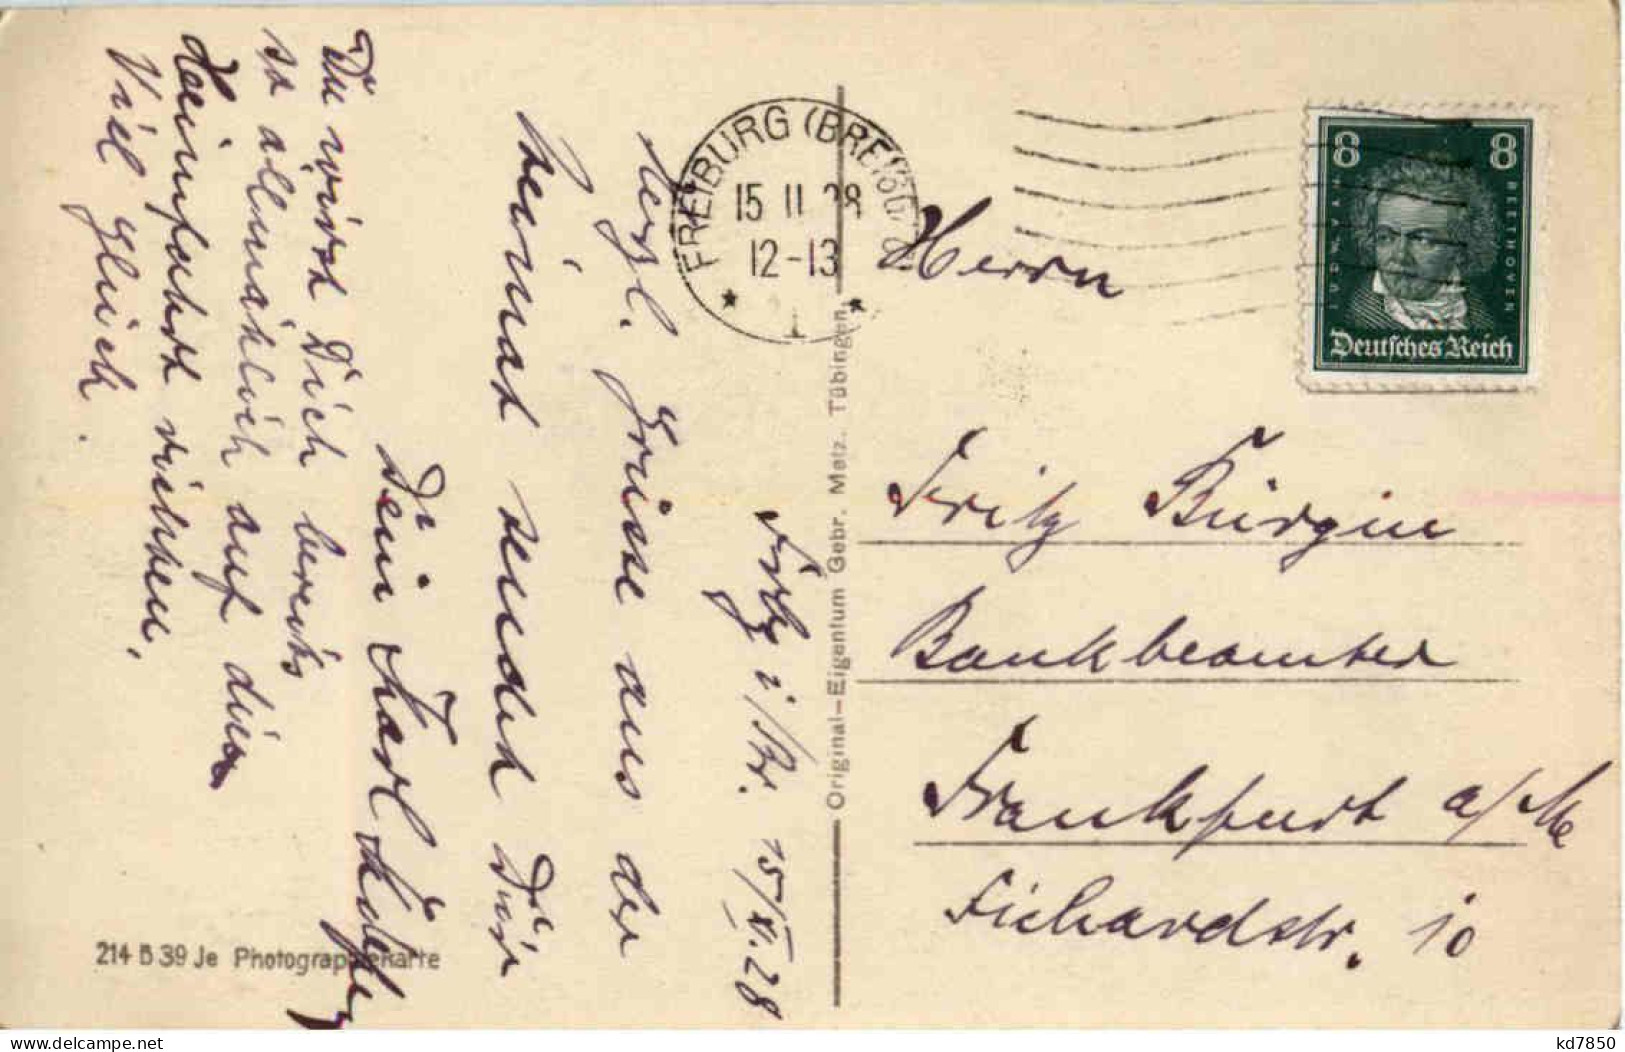 FREIBURG (BREISGAU)
15 11 28
12-13
1
8 8
LUDW. VAN
BEETHOVEN
Deutsches Reich
Herrn
Fritz Bürgin
Bankbeamter
Frankfurt a/M
Fichardstr. 10
Original-Eigentum Gebr. Metz, Tübingen.
Frbg i/Br. 15/XI.28
Herzl. Grüsse aus der
heimat sendet Dir
Dein Karl
Du wirst Dich bereits
so allmählich auf die
Heimfahrt richten.
Viel Glück.
214 B 39 Je Photographiekarte
kd7850